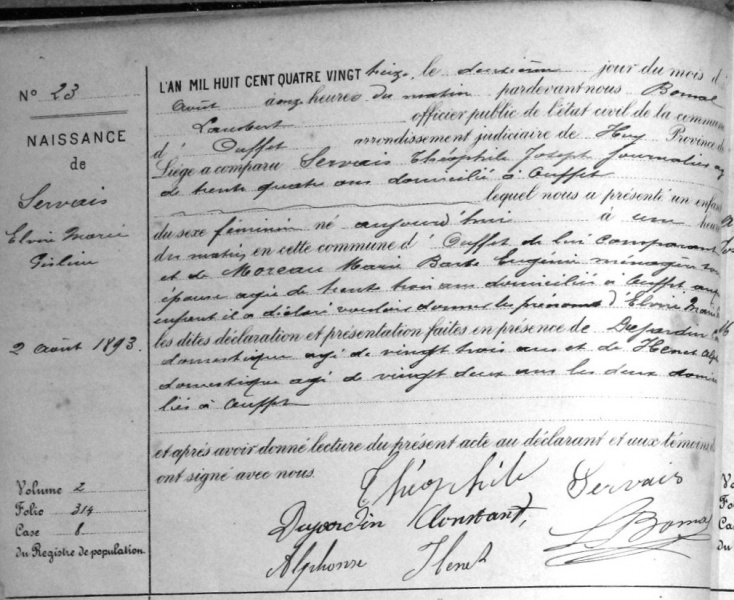 N° 23
NAISSANCE
de
Servais
Elvire Marie
Gisline
2 août 1893.
Volume 2
Folio 314
Case 8
du Registre de population.
L'AN MIL HUIT CENT QUATRE VINGT treize, le deuxième jour du mois d'
août à onze heures du matin pardevant nous Bomal
Lambert officier public de l'état civil de la commune
d' Ouffet arrondissement judiciaire de Huy Province de
Liège a comparu Servais Théophile Joseph Journalier ag
de trente quatre ans domicilié à Ouffet
lequel nous a présenté un enfant
du sexe féminin né aujourd'hui à une heure
du matin en cette commune d' Ouffet de lui comparant
et de Moreau Marie Barbe Eugénie ménagère son
épouse agée de trente trois ans domiciliés à Ouffet auquel
enfant il a déclaré vouloir donner les prénoms d' Elvire Marie
les dites déclaration et présentation faites en présence de Dujardin
domestique agé de vingt trois ans et de Henet Alph
domestique agé de vingt deux ans les deux domici
liés à Ouffet
et après avoir donné lecture du présent acte au déclarant et aux témoins
ont signé avec nous.
Théophile Servais
Dujardin Constant,
L Bomal
Alphonse Henet